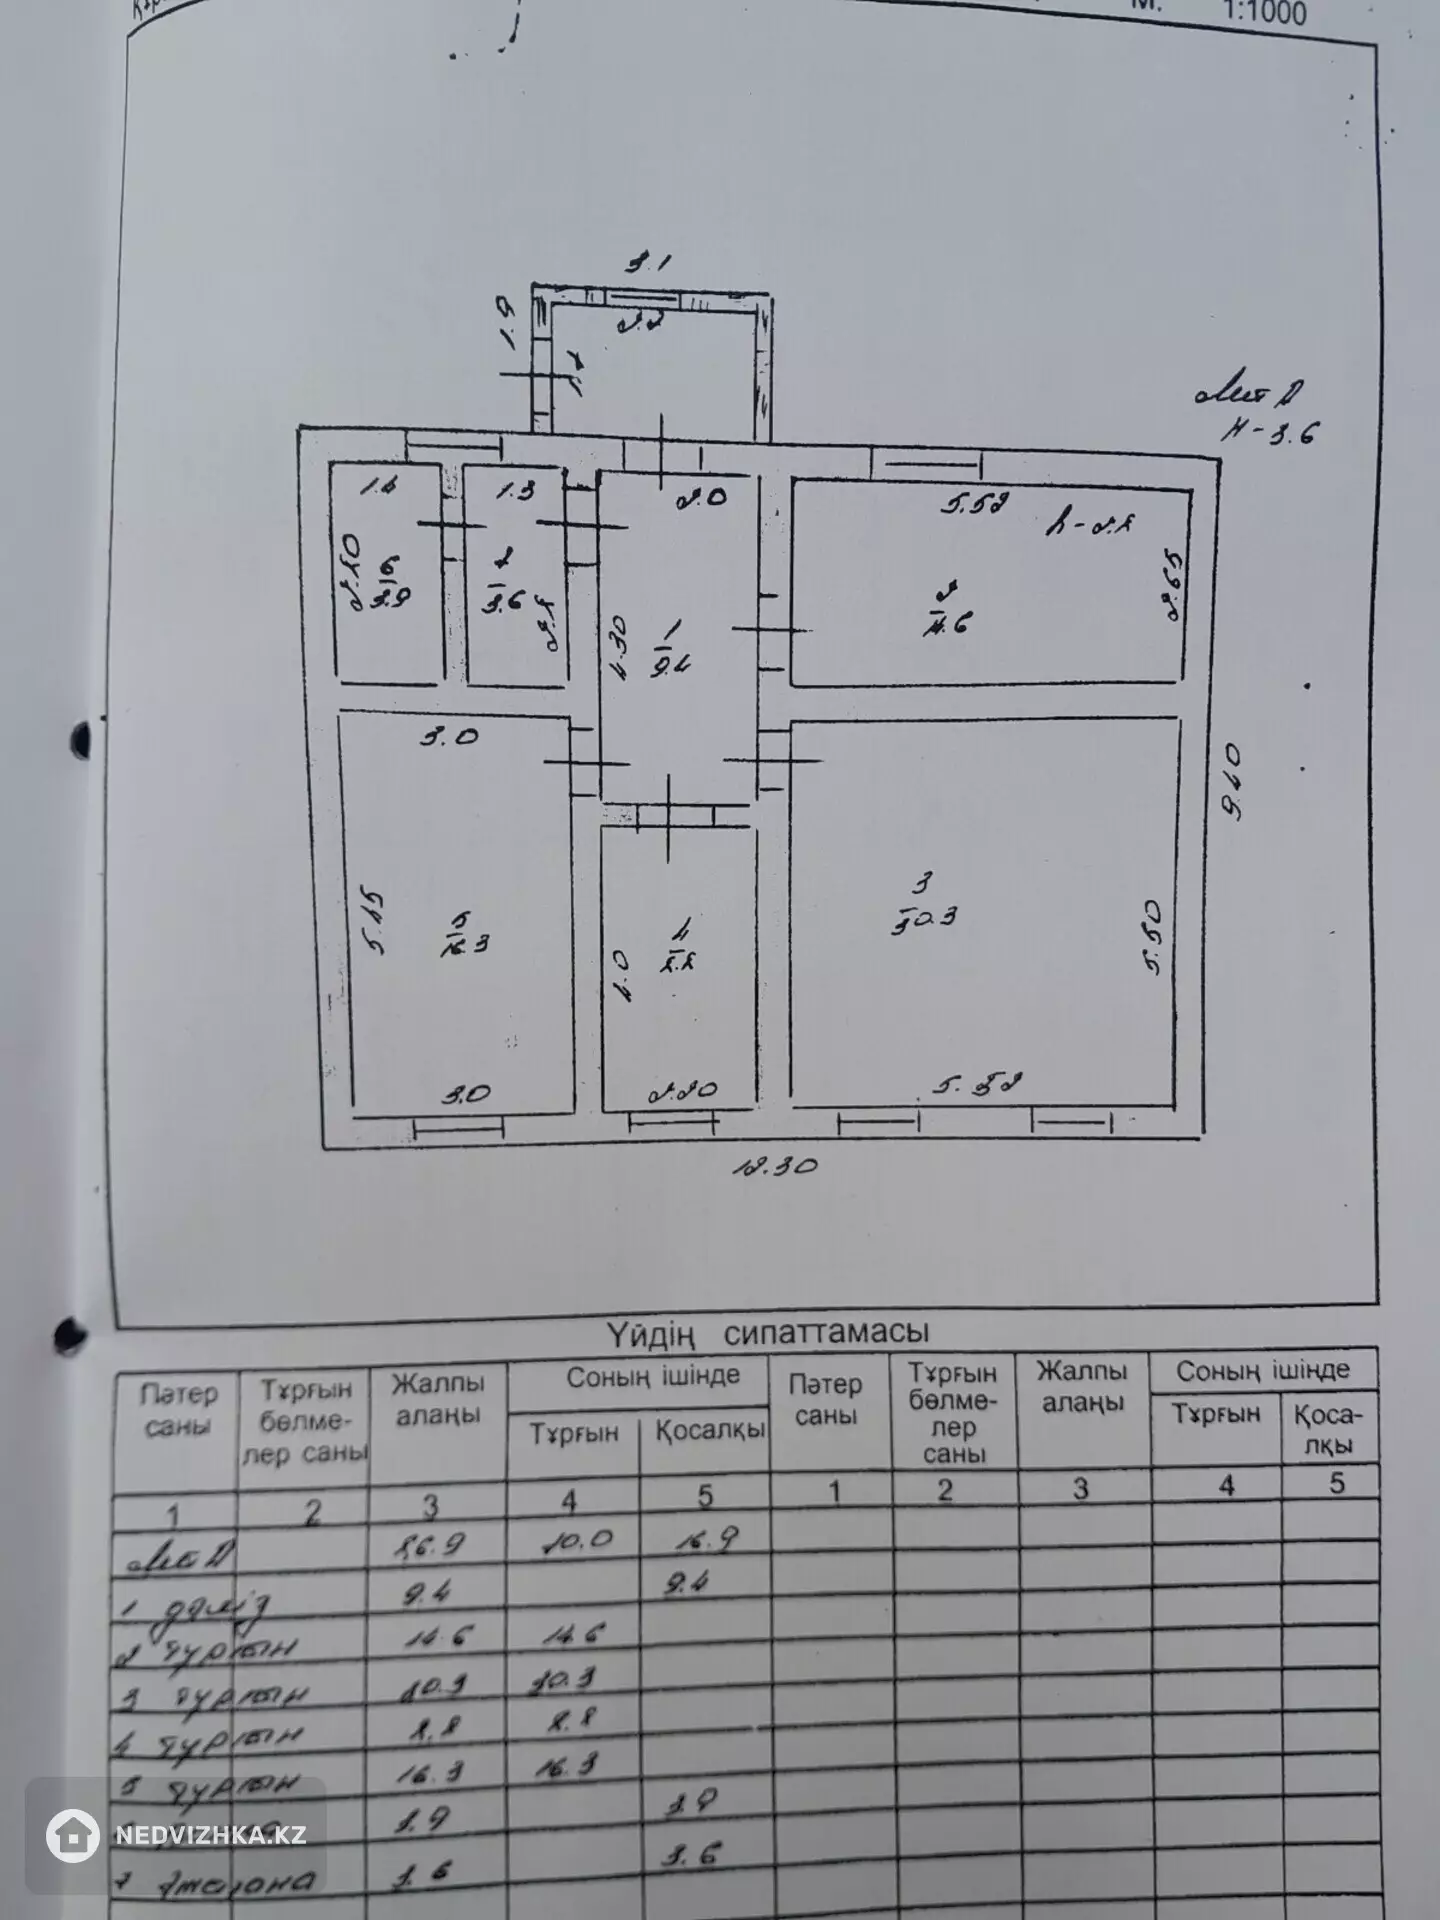 М. 1:1000
3.1
1.9
2.2
Лит А
Н-3.6
1.4
1.3
2.0
5.52
h-2.8
2.80
6
3.9
7
3.6
2.8
4.30
1
9.4
2
14.6
2.65
3.0
9.40
5.45
5
16.3
4
8.8
4.0
3
30.3
5.50
3.0
2.20
5.52
12.30
Үйдің сипаттамасы
Пәтер саны
Тұрғын бөлме-лер саны
Жалпы алаңы
Соның ішінде
Тұрғын
Қосалқы
Пәтер саны
Тұрғын бөлме-лер саны
Жалпы алаңы
Соның ішінде
Тұрғын
Қоса-лқы
1 2 3 4 5 1 2 3 4 5
Лит А 86.9 70.0 16.9
1 дәліз 9.4 9.4
2 тұрғын 14.6 14.6
3 тұрғын 30.3 30.3
4 тұрғын 8.8 8.8
5 тұрғын 16.3 16.3
3.9 3.9
7 3.6 3.6
NEDVIZHKA.KZ